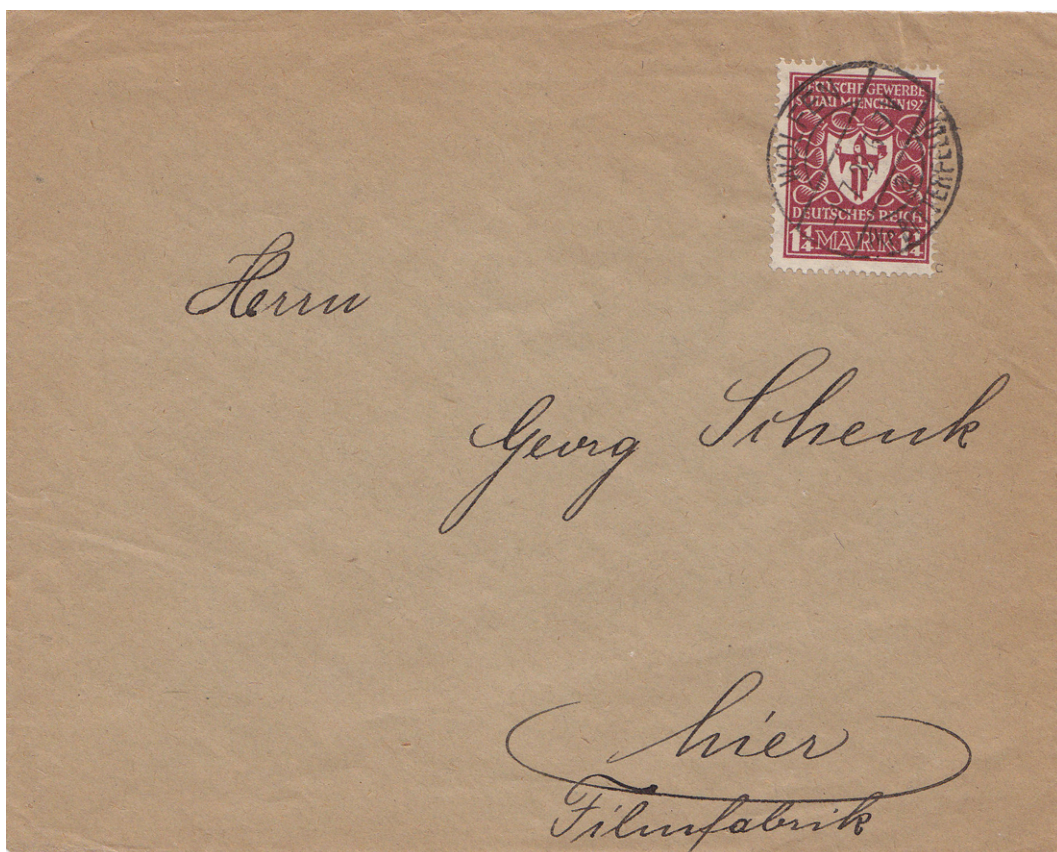 DEUTSCHE GEWERBE
SCHAU MUENCHEN 192
DEUTSCHES REICH
1¼ MARK 1¼
WOLFEN
BITTERFELD
Herrn
Georg Schenk
hier
Filmfabrik